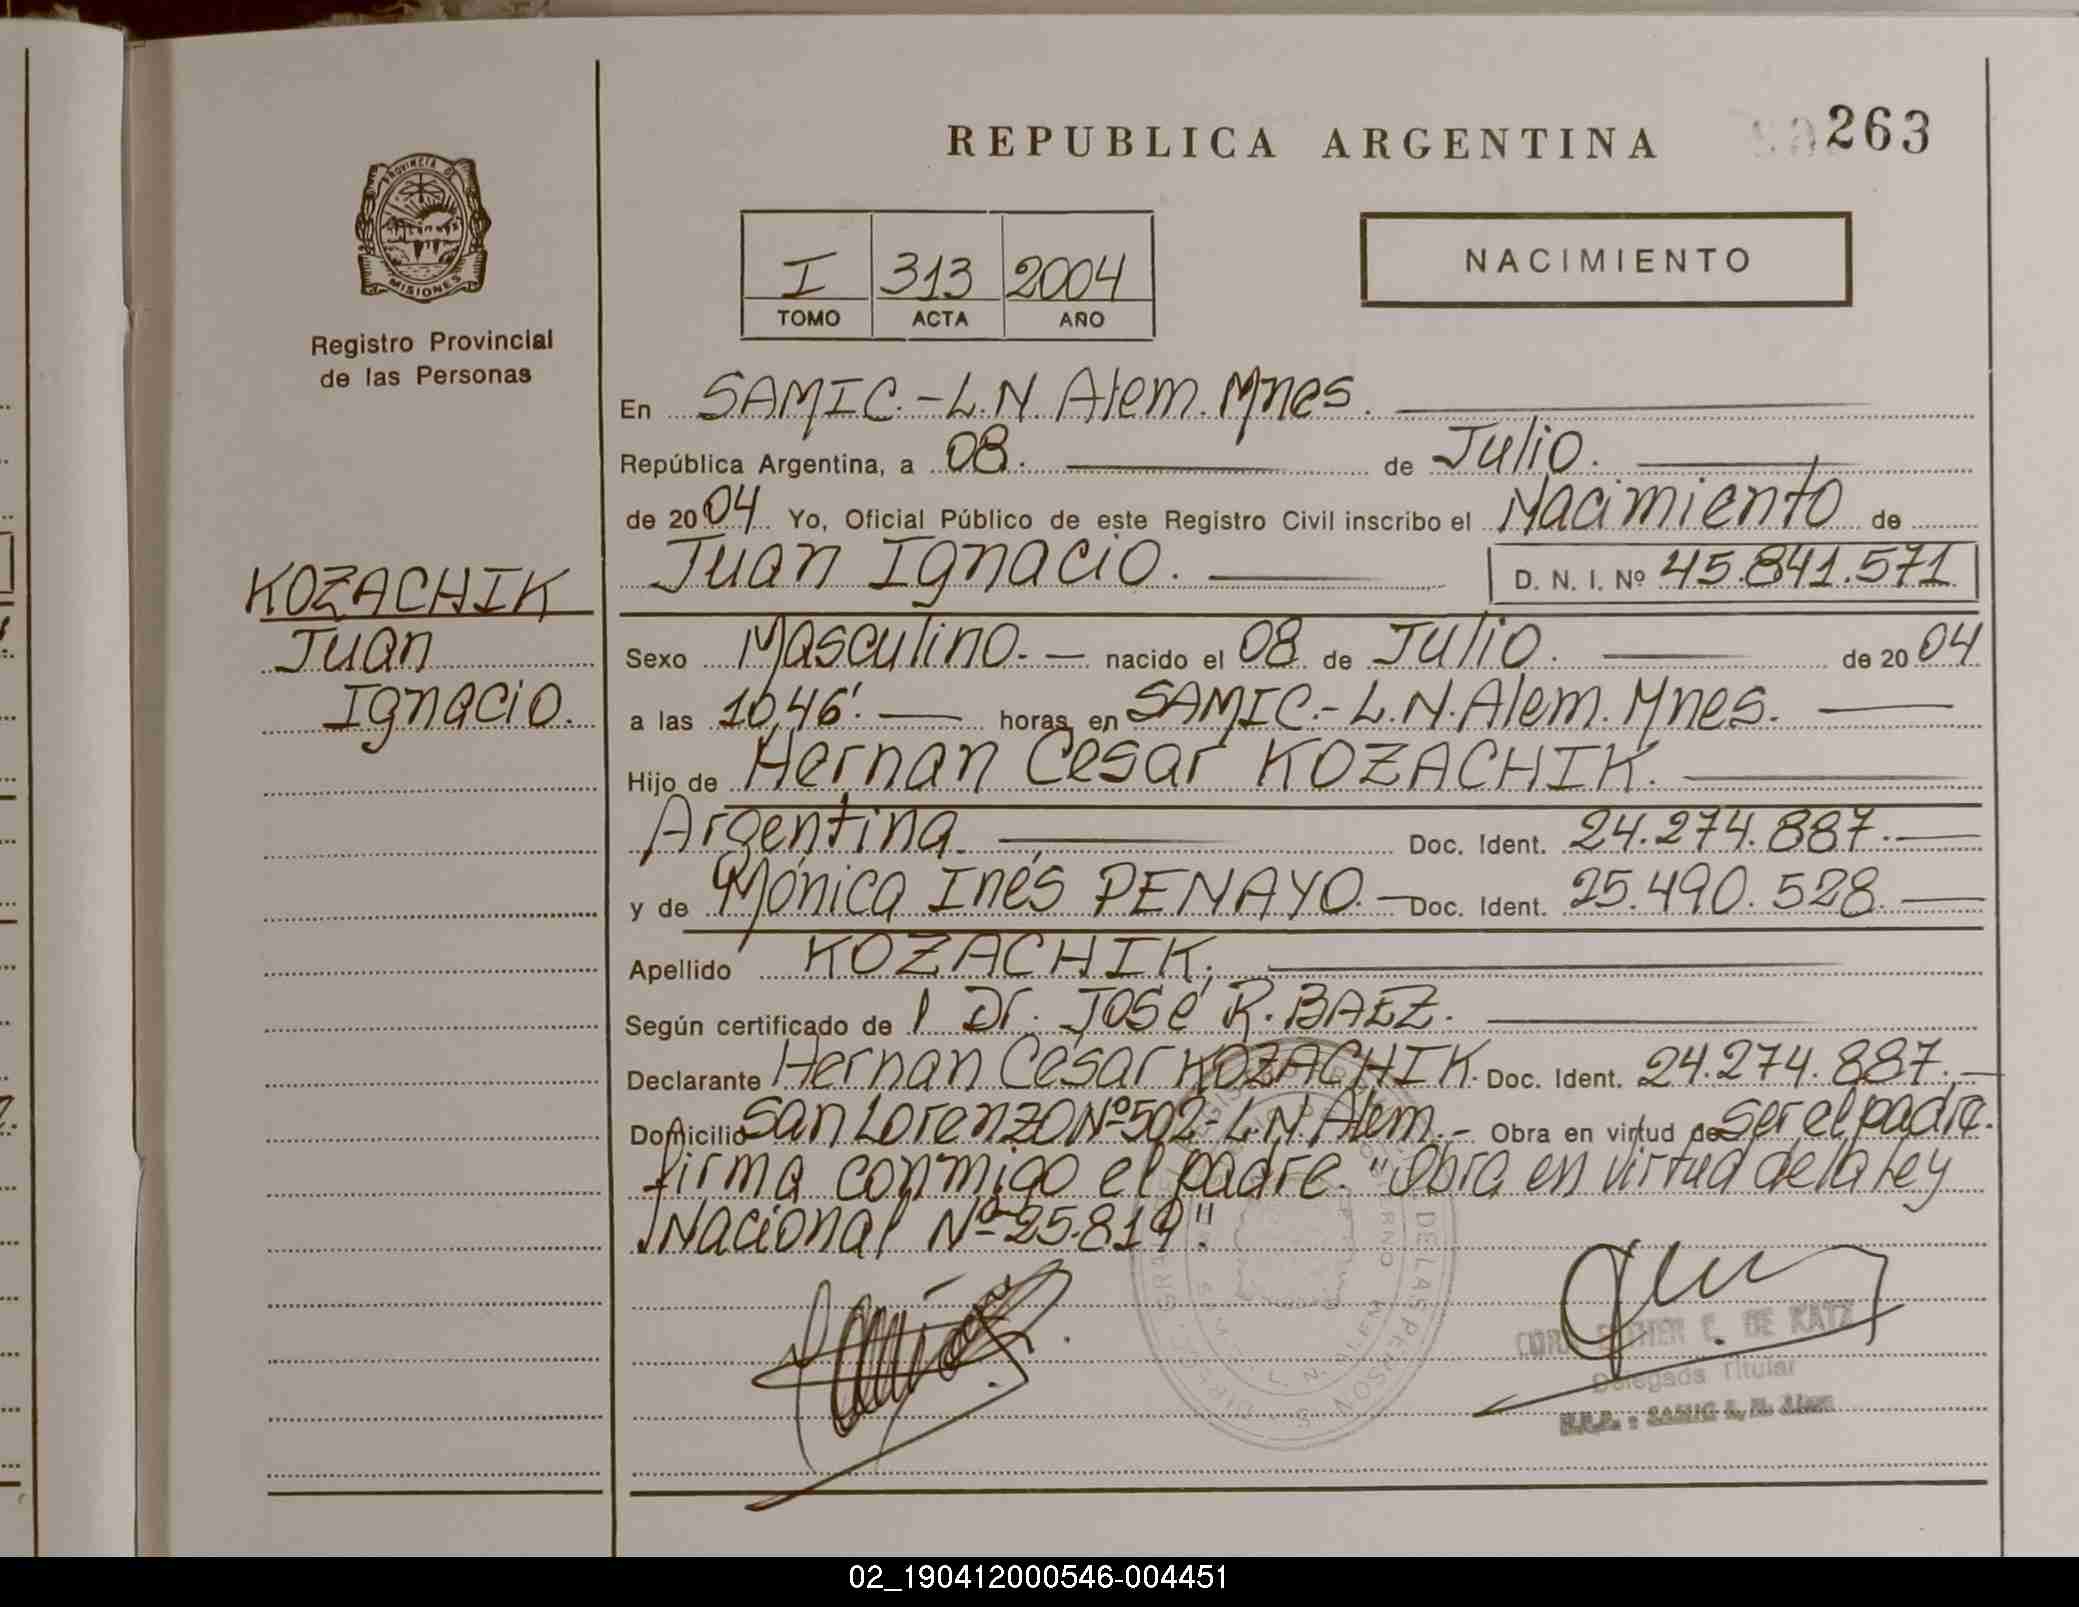 REPUBLICA ARGENTINA
263
PROVINCIA DE
MISIONES
Registro Provincial
de las Personas
I 313 2004
TOMO ACTA AÑO
NACIMIENTO
En SAMIC.-L.N. Alem. Mnes.
República Argentina, a 08. de Julio.
de 2004 Yo, Oficial Público de este Registro Civil inscribo el Nacimiento de
Juan Ignacio. D. N. I. Nº 45.841.571
KOZACHIK
Juan
Ignacio.
Sexo Masculino. nacido el 08 de Julio. de 2004
a las 10,46'. horas en SAMIC.-L.N.Alem. Mnes.
Hijo de Hernan Cesar KOZACHIK.
Argentina. Doc. Ident. 24.274.887.
y de Mónica Inés PENAYO. Doc. Ident. 25.490.528.
Apellido KOZACHIK.
Según certificado de Dr. José R. BAEZ.
Declarante Hernan Cesar KOZACHIK. Doc. Ident. 24.274.887.
Domicilio San Lorenzo Nº 502-L.N. Alem.- Obra en virtud de ser el padre.
firma conmigo el padre. "Obra en virtud de la ley
Nacional Nº 25.819."
DE LAS PERSONAS
C. DE KATZ
Delegada Titular
SAMIC L. N. Alem
02_190412000546-004451